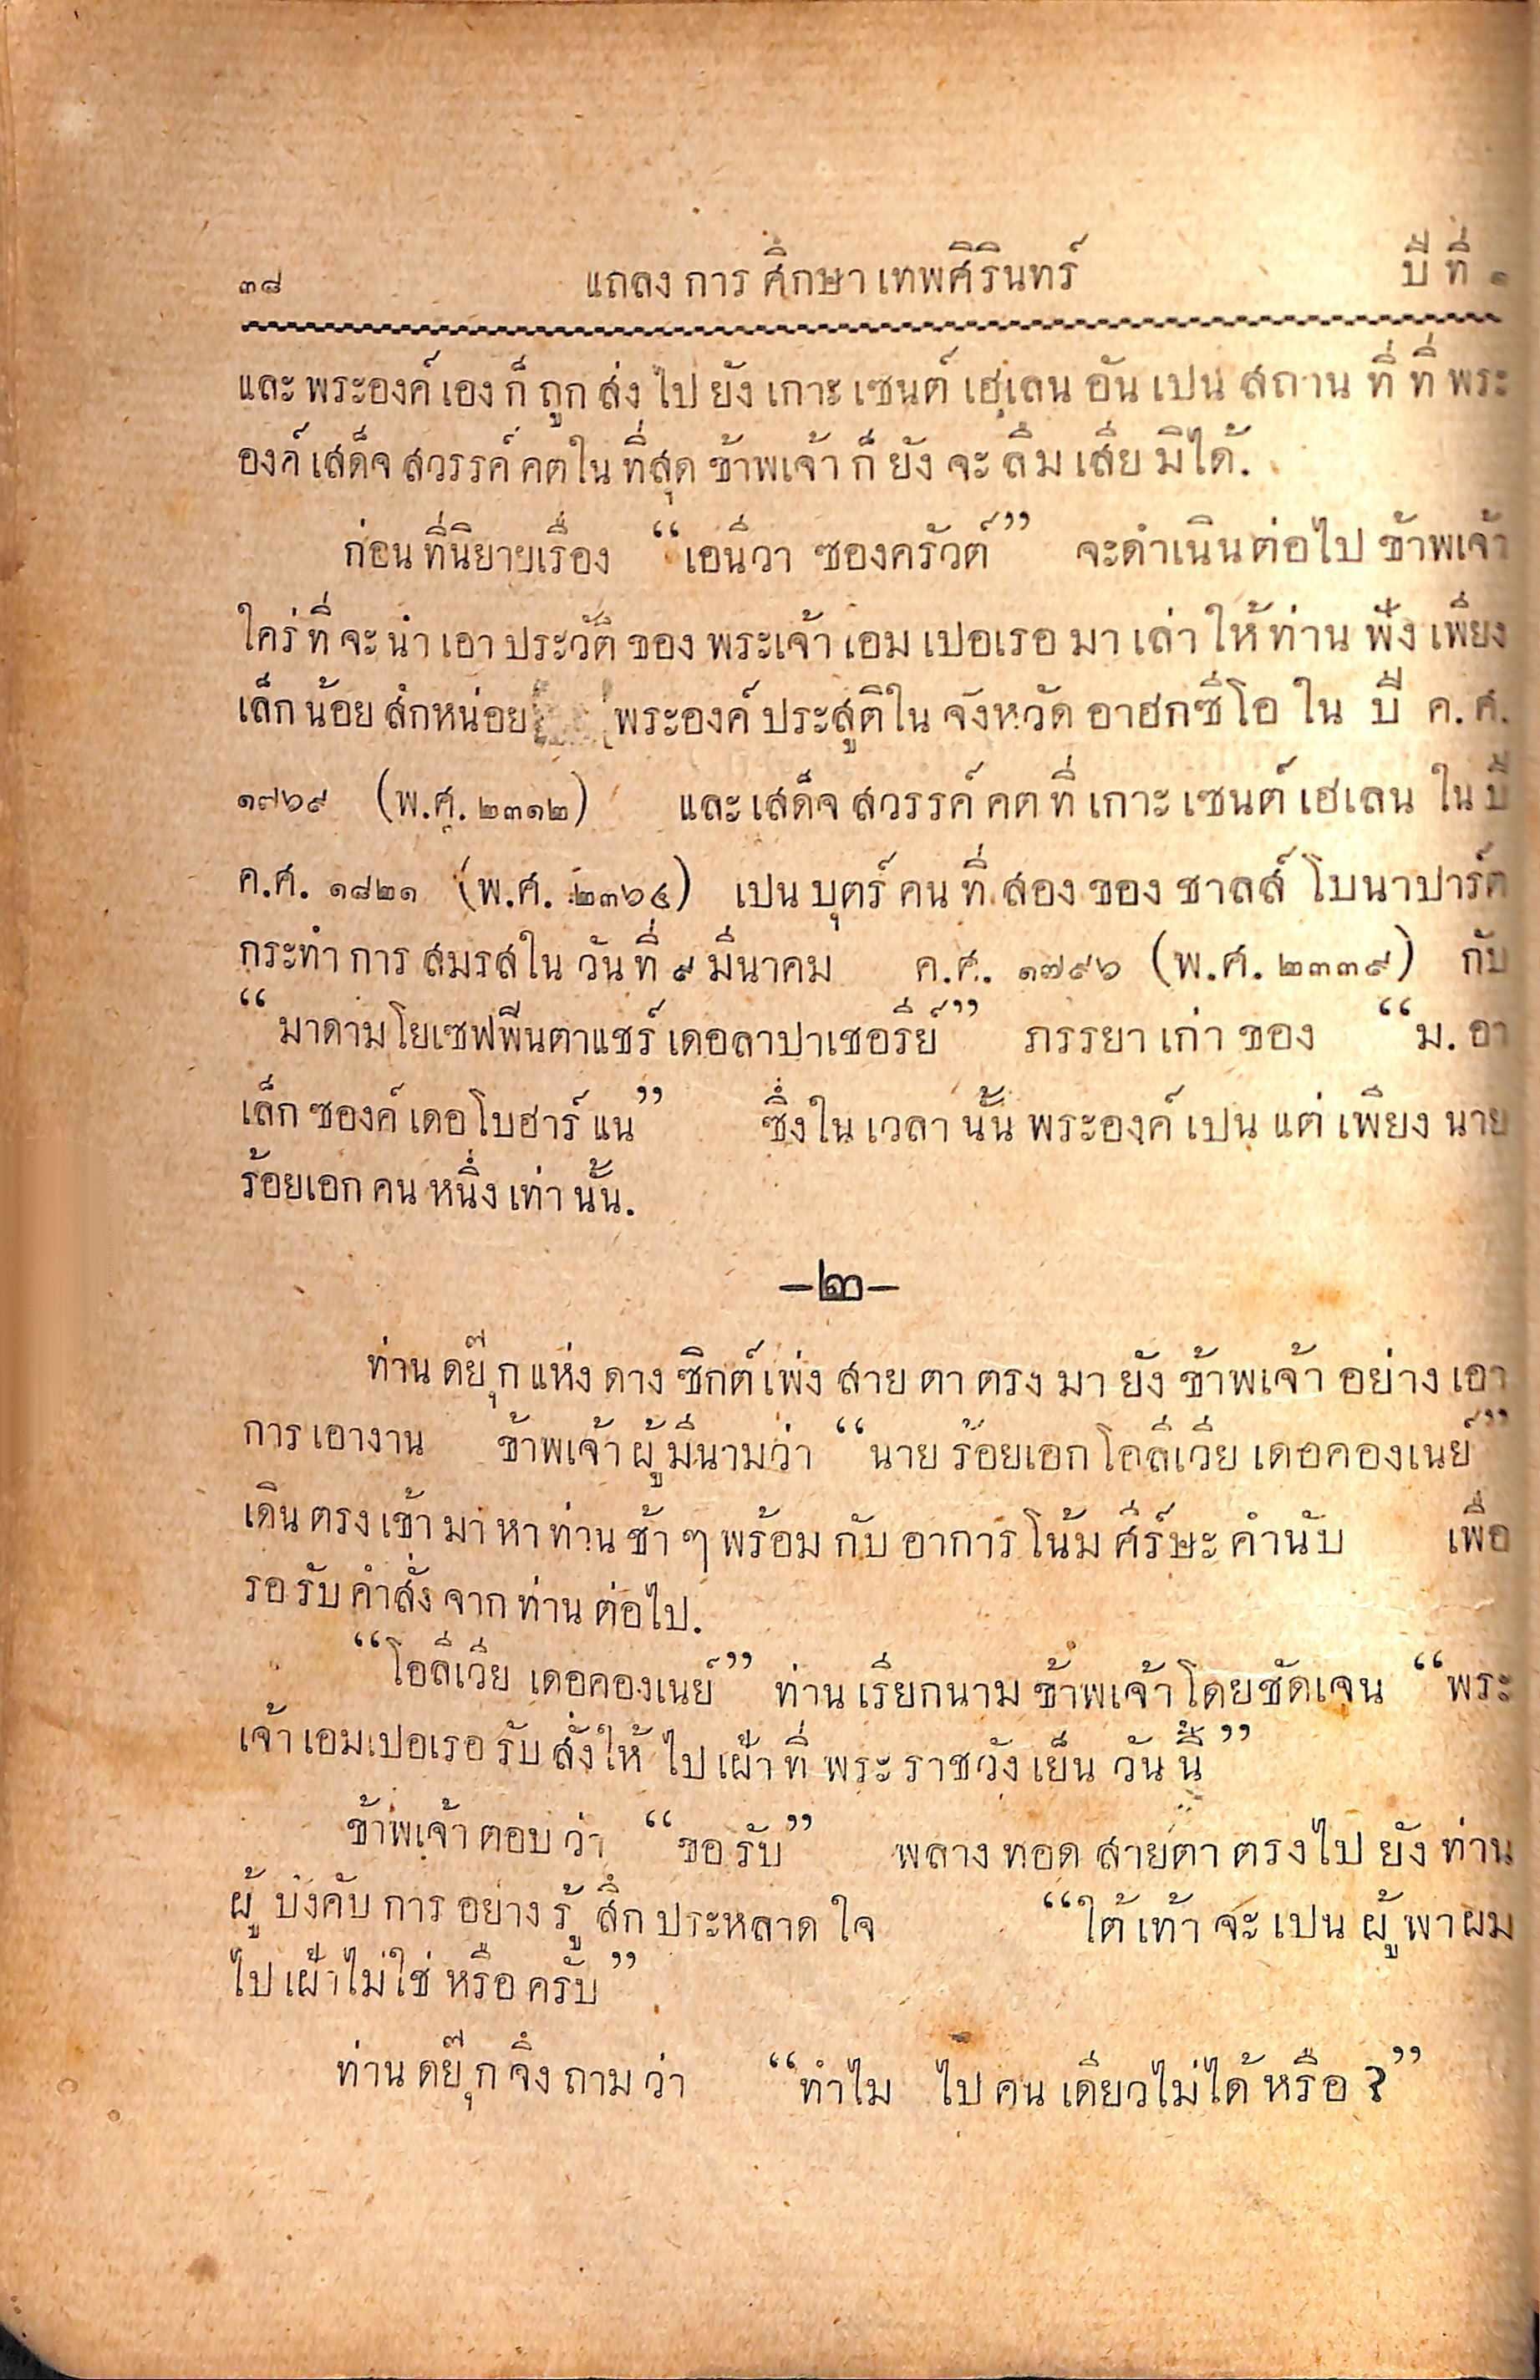 ๓๘ แถลงการศึกษาเทพศิรินทร์ ปีที่ ๑
และพระองค์เองก็ถูกส่งไปยังเกาะเซนต์เฮเลน อันเปนสถานที่ที่พระ
องค์เสด็จสวรรค์คตในที่สุด ข้าพเจ้าก็ยังจะลืมเสียมิได้.
ก่อนที่นิยายเรื่อง “เอนีวา ซองครัวต์” จะดำเนินต่อไป ข้าพเจ้า
ใคร่ที่จะนำเอาประวัติของพระเจ้าเอมเปอเรอมาเล่าให้ท่านฟังเพียง
เล็กน้อยสักหน่อย พระองค์ประสูติในจังหวัดอาฮกซีโอ ใน ปี ค.ศ.
๑๗๖๙ (พ.ศ. ๒๓๑๒) และเสด็จสวรรค์คตที่เกาะเซนต์เฮเลน ในปี
ค.ศ. ๑๘๒๑ (พ.ศ. ๒๓๖๔) เปนบุตร์คนที่สองของชาลส์ โบนาปาร์ต
กระทำการสมรสในวันที่ ๙ มีนาคม ค.ศ. ๑๗๙๖ (พ.ศ. ๒๓๓๙) กับ
“มาดามโยเซฟพีนตาแชร์ เดอลาปาเชอรีย์” ภรรยาเก่าของ “ม. อา
เล็กซองค์ เดอโบฮาร์แน” ซึ่งในเวลานั้นพระองค์เปนแต่เพียงนาย
ร้อยเอกคนหนึ่งเท่านั้น.
—๒—
ท่านดยุ๊กแห่งดางซิกต์เพ่งสายตาตรงมายังข้าพเจ้าอย่างเอา
การเอางาน ข้าพเจ้าผู้มีนามว่า “นายร้อยเอกโอลีเวีย เดอคองเนย์”
เดินตรงเข้ามาหาท่านช้าๆพร้อมกับอาการโน้มศีร์ษะคำนับ เพื่อ
รอรับคำสั่งจากท่านต่อไป.
“โอลีเวีย เดอคองเนย์” ท่านเรียกนามข้าพเจ้าโดยชัดเจน “พระ
เจ้าเอมเปอเรอรับสั่งให้ไปเฝ้าที่พระราชวังเย็นวันนี้”
ข้าพเจ้าตอบว่า “ขอรับ” พลางทอดสายตาตรงไปยังท่าน
ผู้บังคับการอย่างรู้สึกประหลาดใจ “ใต้เท้าจะเปนผู้พาผม
ไปเฝ้าไม่ใช่หรือครับ”
ท่านดยุ๊กจึงถามว่า “ทำไม ไปคนเดียวไม่ได้หรือ?”